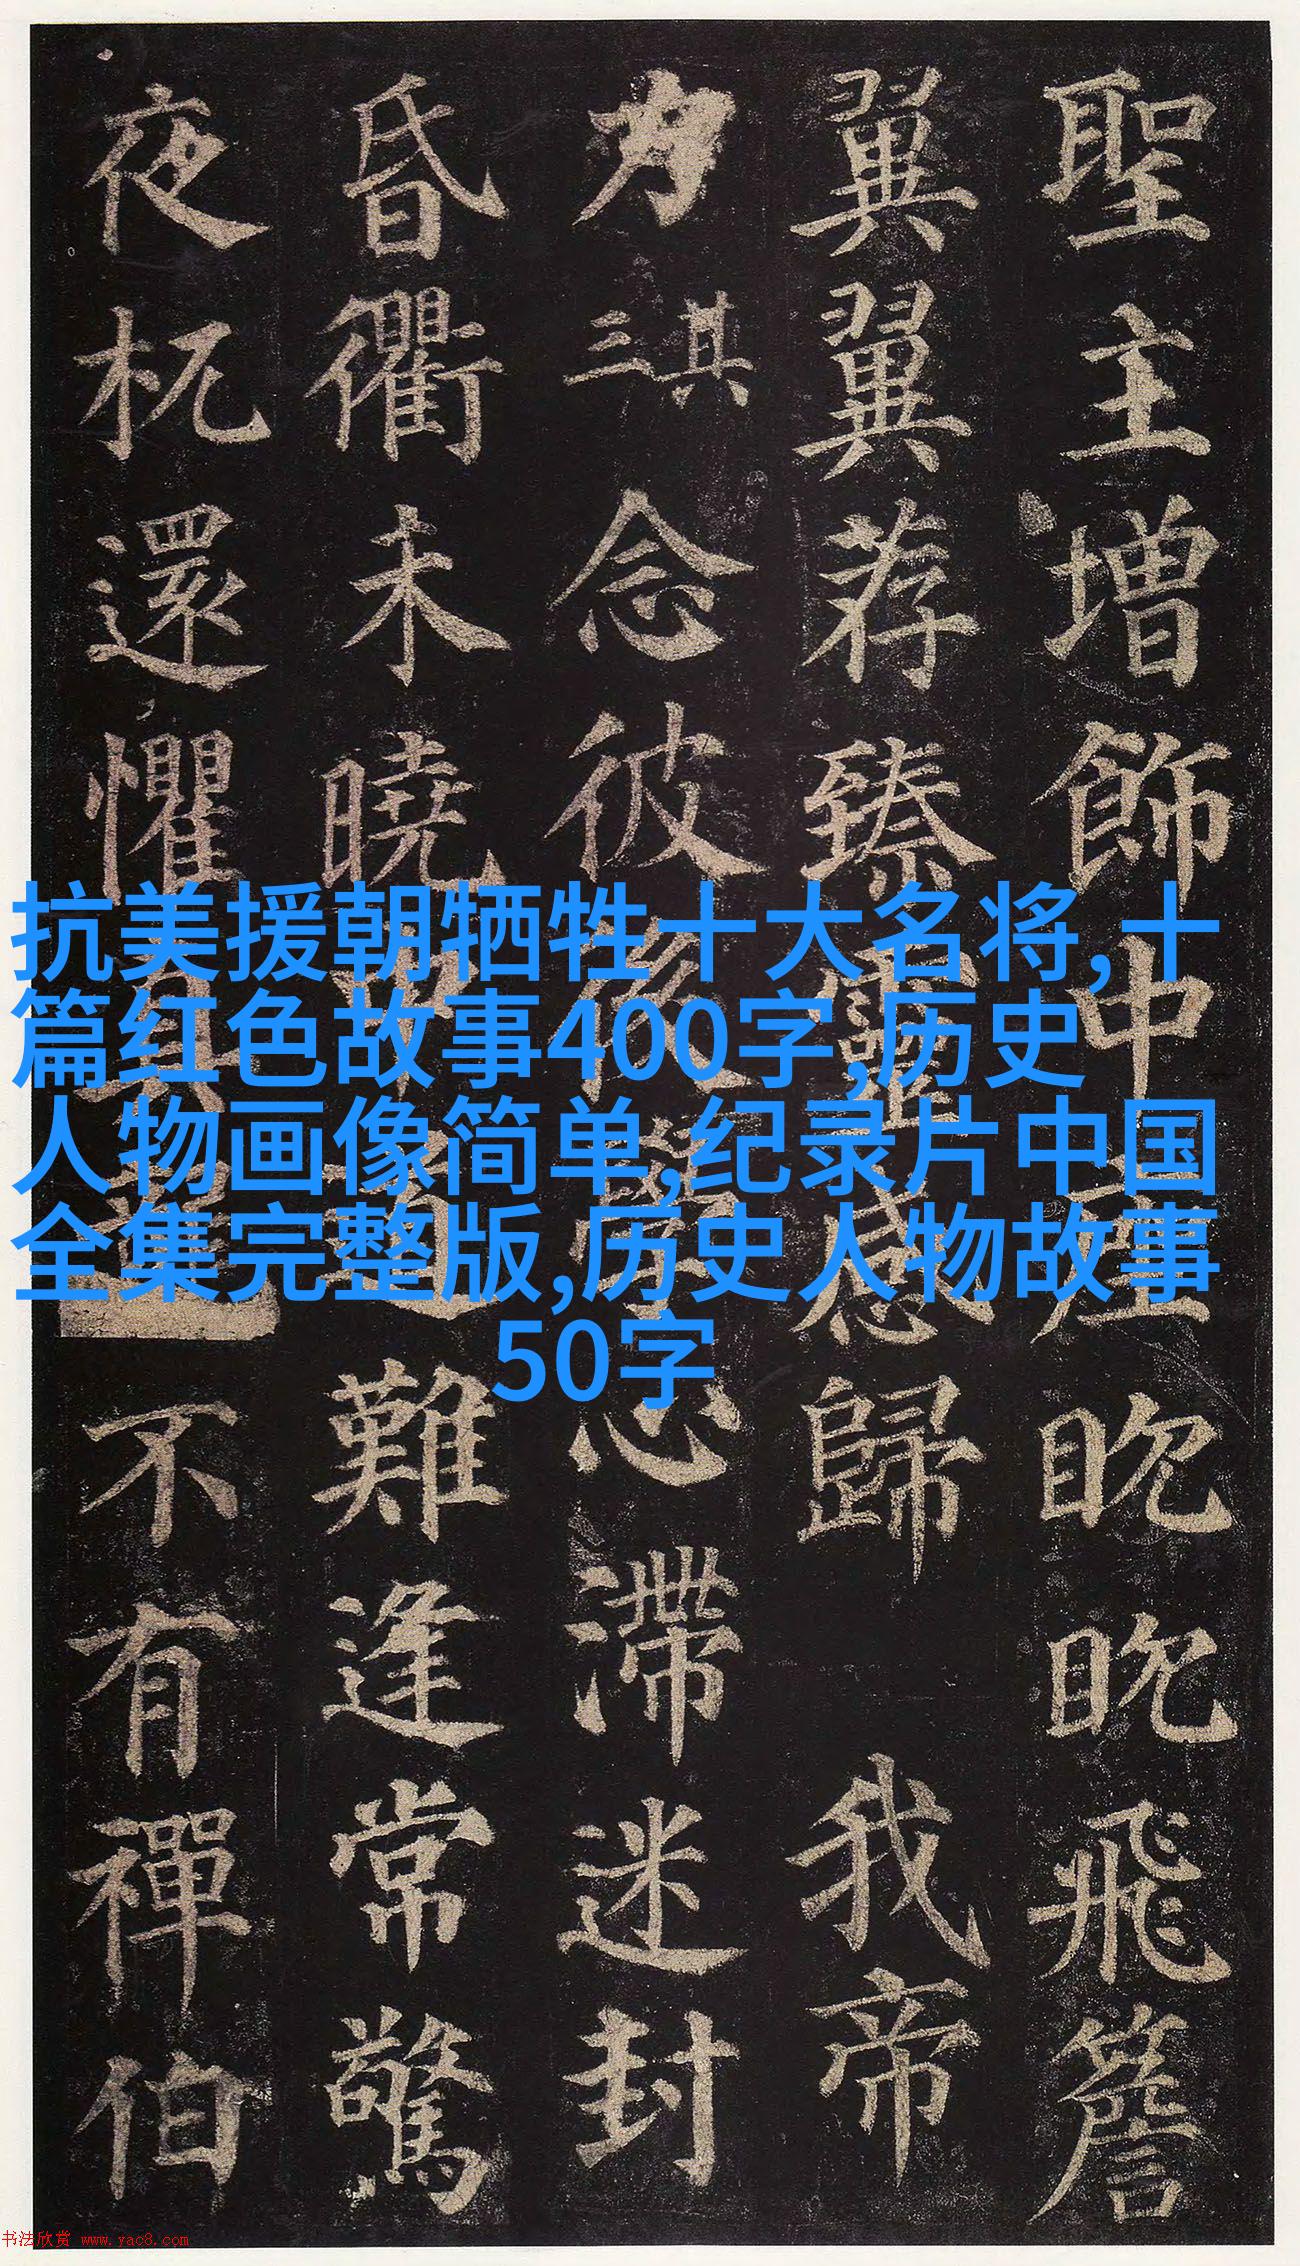 聖主增飾中座眈眈飛簷
翼翼荐臻靈感歸 我帝
力 其三 念彼後學心滯迷封
昏衢未曉中道難逢常驚
夜杌還懼真 不有禪伯
抗美援朝牺牲十大名将,十
篇红色故事400字,历史
人物画像简单,纪录片中国
全集完整版,历史人物故事
50字
书法欣赏 www.yac8.com